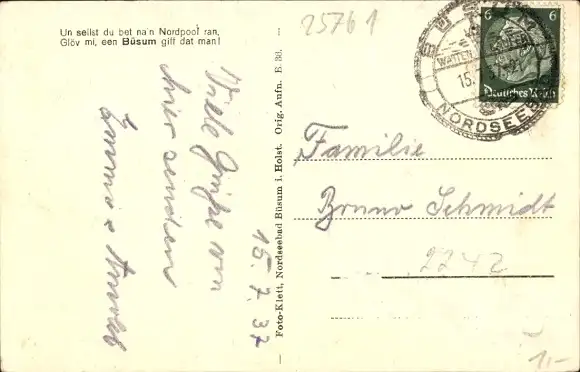 Un seilst du bet na'n Nordpool ran,
Glöv mi, een Büsum gift dat man!
25761
6 6
Deutsches Reich
WATTEN
15.
NORDSEEB
Viele Grüße von
hier senden
Arnold
15. 7. 37
Foto-Klett, Nordseebad Büsum i. Holst. Orig. Aufn. E. 30.
Familie
Bruno Schmidt
2242
1,-